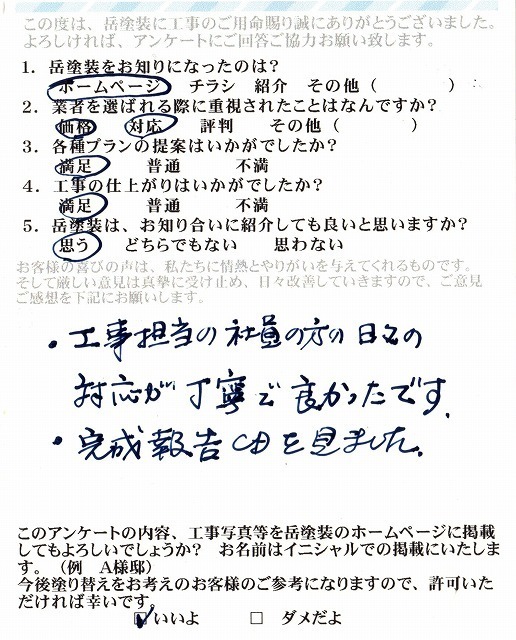 この度は、岳塗装に工事のご用命賜り誠にありがとうございました。
よろしければ、アンケートにご回答ご協力お願い致します。
1．岳塗装をお知りになったのは？
ホームページ　チラシ　紹介　その他（　　　　）
2．業者を選ばれる際に重視されたことはなんですか？
価格　対応　評判　その他（　　　　）
3．各種プランの提案はいかがでしたか？
満足　普通　不満
4．工事の仕上がりはいかがでしたか？
満足　普通　不満
5．岳塗装は、お知り合いに紹介しても良いと思いますか？
思う　どちらでもない　思わない
お客様の喜びの声は、私たちに情熱とやりがいを与えてくれるものです。
そして厳しい意見は真摯に受け止め、日々改善していきますので、ご意見
ご感想を下記にお願いします。
・工事担当の社員の方の日々の
対応が丁寧で良かったです。
・完成報告CDを見ました。
このアンケートの内容、工事写真等を岳塗装のホームページに掲載
してもよろしいでしょうか？　お名前はイニシャルでの掲載にいたしま
す。（例　A様邸）
今後塗り替えをお考えのお客様のご参考になりますので、許可いた
だければ幸いです。
☑いいよ　□　ダメだよ